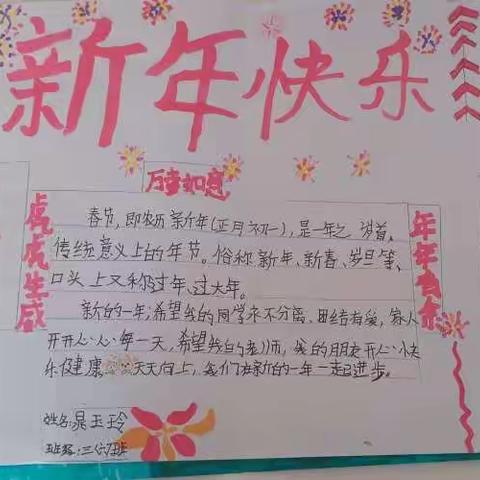 新年快乐
万事如意
虎虎生威
年年有余
春节,即农历新年(正月初一),是一年之岁首,
传统意义上的年节。俗称新年、新春、岁旦等,
口头上又称过年、过大年。
新的一年,希望我的同学永不分离、团结有爱,家人
开开心心每一天,希望我的老师,我的朋友开心快
乐健康 天天向上,我们在新的一年一起进步。
姓名:晁玉玲
班级:三(6)班